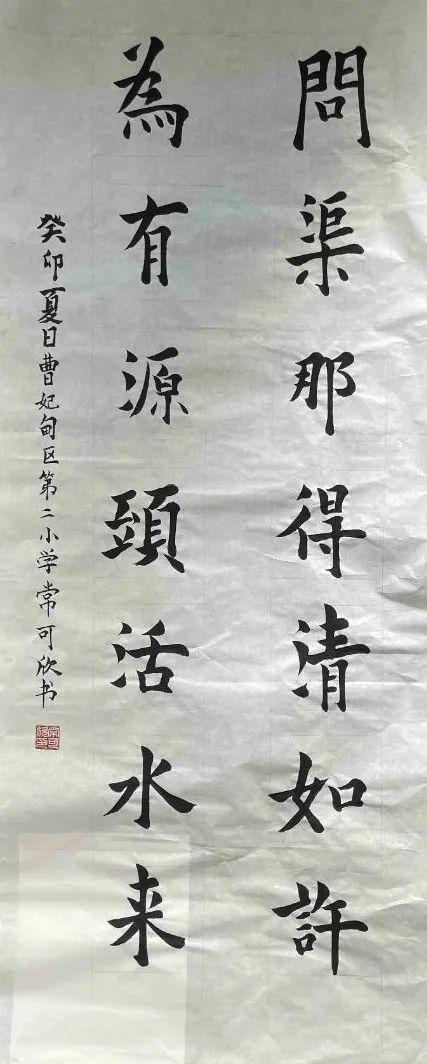 問渠那得清如許
為有源頭活水来
癸卯夏日曹妃甸区第二小学常可欣书